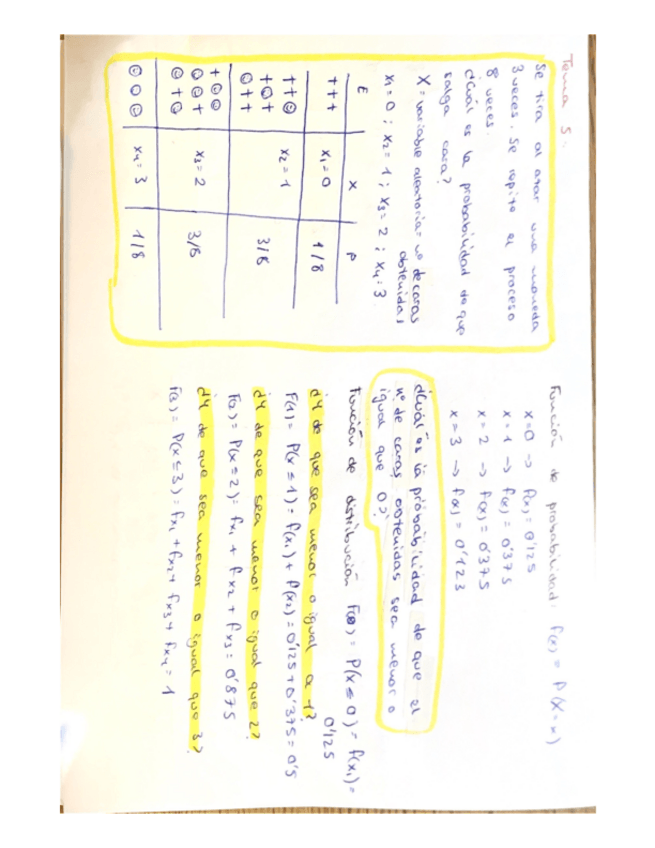 Tema 5.
Se tira al azar una moneda
3 veces. Se repite el proceso
8 veces.
¿Cuál es la probabilidad de que
salga cara?
X = variable aleatoria = nº de caras
obtenidas
x₁ = 0 ; x₂ = 1 ; x₃ = 2 ; x₄ = 3
E X P
+++ x₁ = 0 1/8
++☺
+☺+ x₂ = 1 3/8
☺++
+☺☺
☺☺+ x₃ = 2 3/8
☺+☺
☺☺☺ x₄ = 3 1/8
Función de probabilidad: f(x) = P(X=x)
x=0 → f(x) = 0'125
x=1 → f(x) = 0'375
x=2 → f(x) = 0'375
x=3 → f(x) = 0'123
¿Cuál es la probabilidad de que el
nº de caras obtenidas sea menor o
igual que 0?
Función de distribución F(0) = P(x≤0) = f(x₁) =
0'125
¿Y de que sea menor o igual a 1?
F(1) = P(x≤1) = f(x₁) + f(x₂) = 0'125 + 0'375 = 0'5
¿Y de que sea menor o igual que 2?
F(2) = P(x≤2) = fx₁ + fx₂ + fx₃ = 0'875
¿Y de que sea menor o igual que 3?
F(3) = P(x≤3) = fx₁ + fx₂ + fx₃ + fx₄ = 1